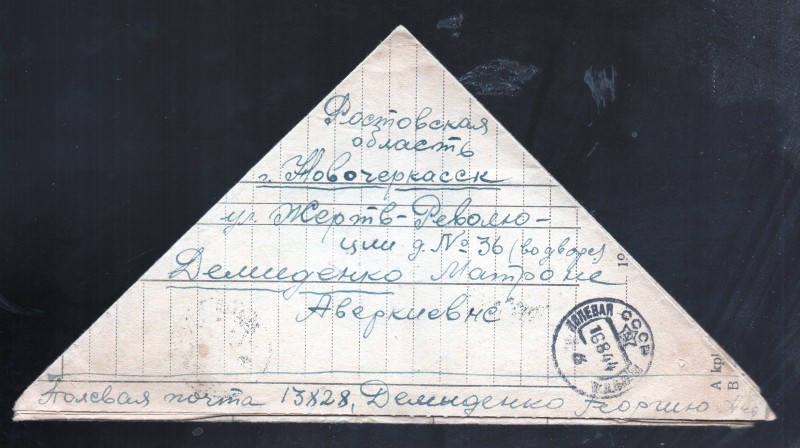 Ростовская
область
г. Новочеркасск
ул. Жертв-Револю-
ции д. № 36 (во дворе)
Демиденко Матроне
Аверкиевне
1º
СССР
ПОЛЕВАЯ
16 8 44
ПОЧТА
A kpl
B
Полевая почта 13828, Демиденко Георгию